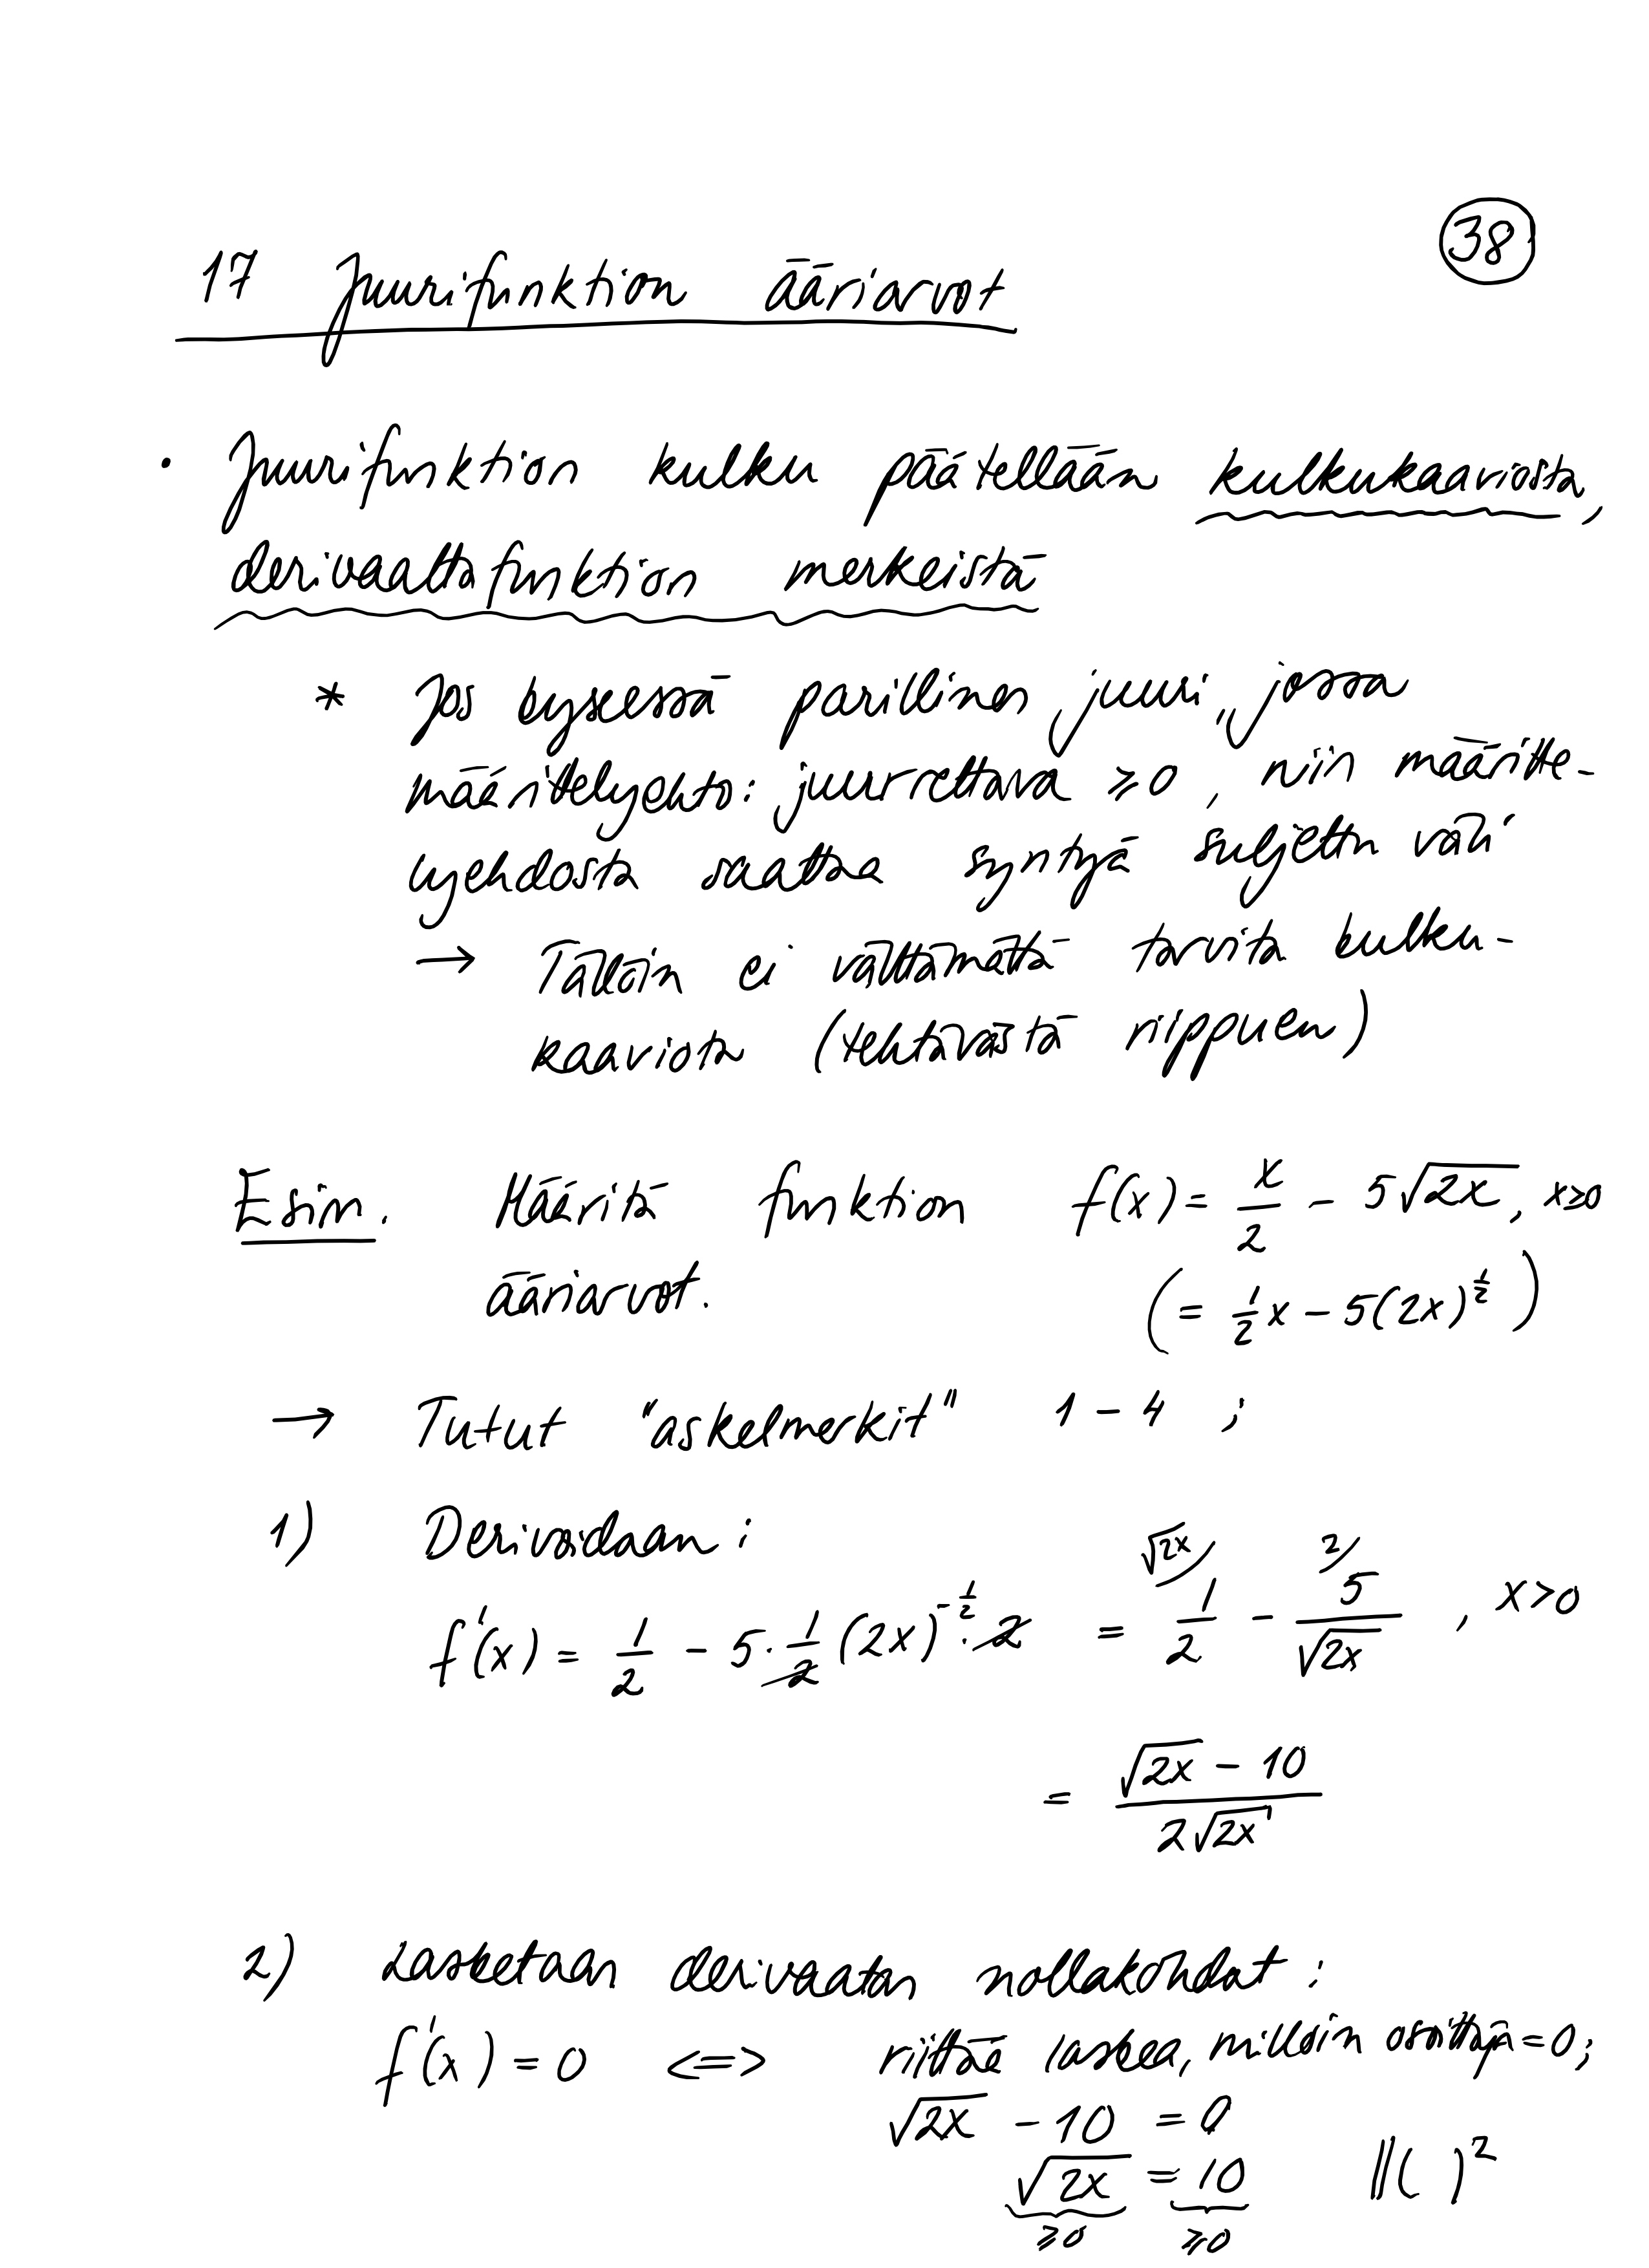 38
17 Juurifunktion ääriarvot
• Juurifunktion kulku päätellään kulkukaaviosta,
derivaattafunktion merkeistä
* Jos kyseessä parillinen juuri, jossa
määrittelyehto: juurrettava ⩾ 0, niin määritte-
lyehdosta saattaa syntyä suljettu väli
→ Tällöin ei välttämättä tarvita kulku-
kaaviota (tehtävästä riippuen)
Esim. Määritä funktion f(x) = x/2 - 5√(2x), x≥0
ääriarvot. (= 1/2 x - 5(2x)^(1/2))
→ Tutut "askelmerkit" 1 - 4 ;
1) Derivoidaan :
f'(x) = 1/2 - 5 · 1/2 (2x)^(-1/2) · 2 = √(2x)/ 1/2 - 2/ 5/√(2x) , x>0
= (√(2x) - 10)/(2√(2x))
2) Lasketaan derivaatan nollakohdat :
f'(x) = 0 <=> riittää laskea, milloin osoittaja = 0;
√(2x) - 10 = 0
√(2x) = 10 ||( )²
⩾0 ⩾0